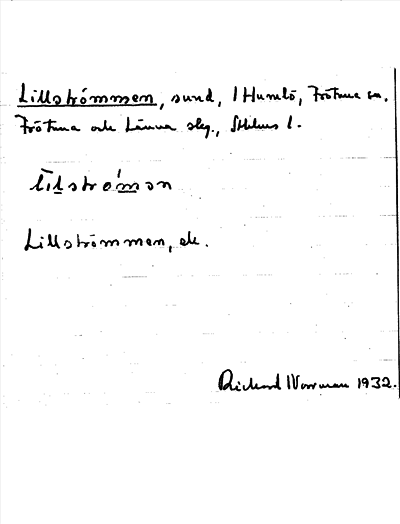 Lillströmmen, sund, i Humlö, Frötuna sn.
Frötuna och Länna slg., Sthlms l.
lilströmən
Lillströmmen, ek.
Rickard Norrman 1932.